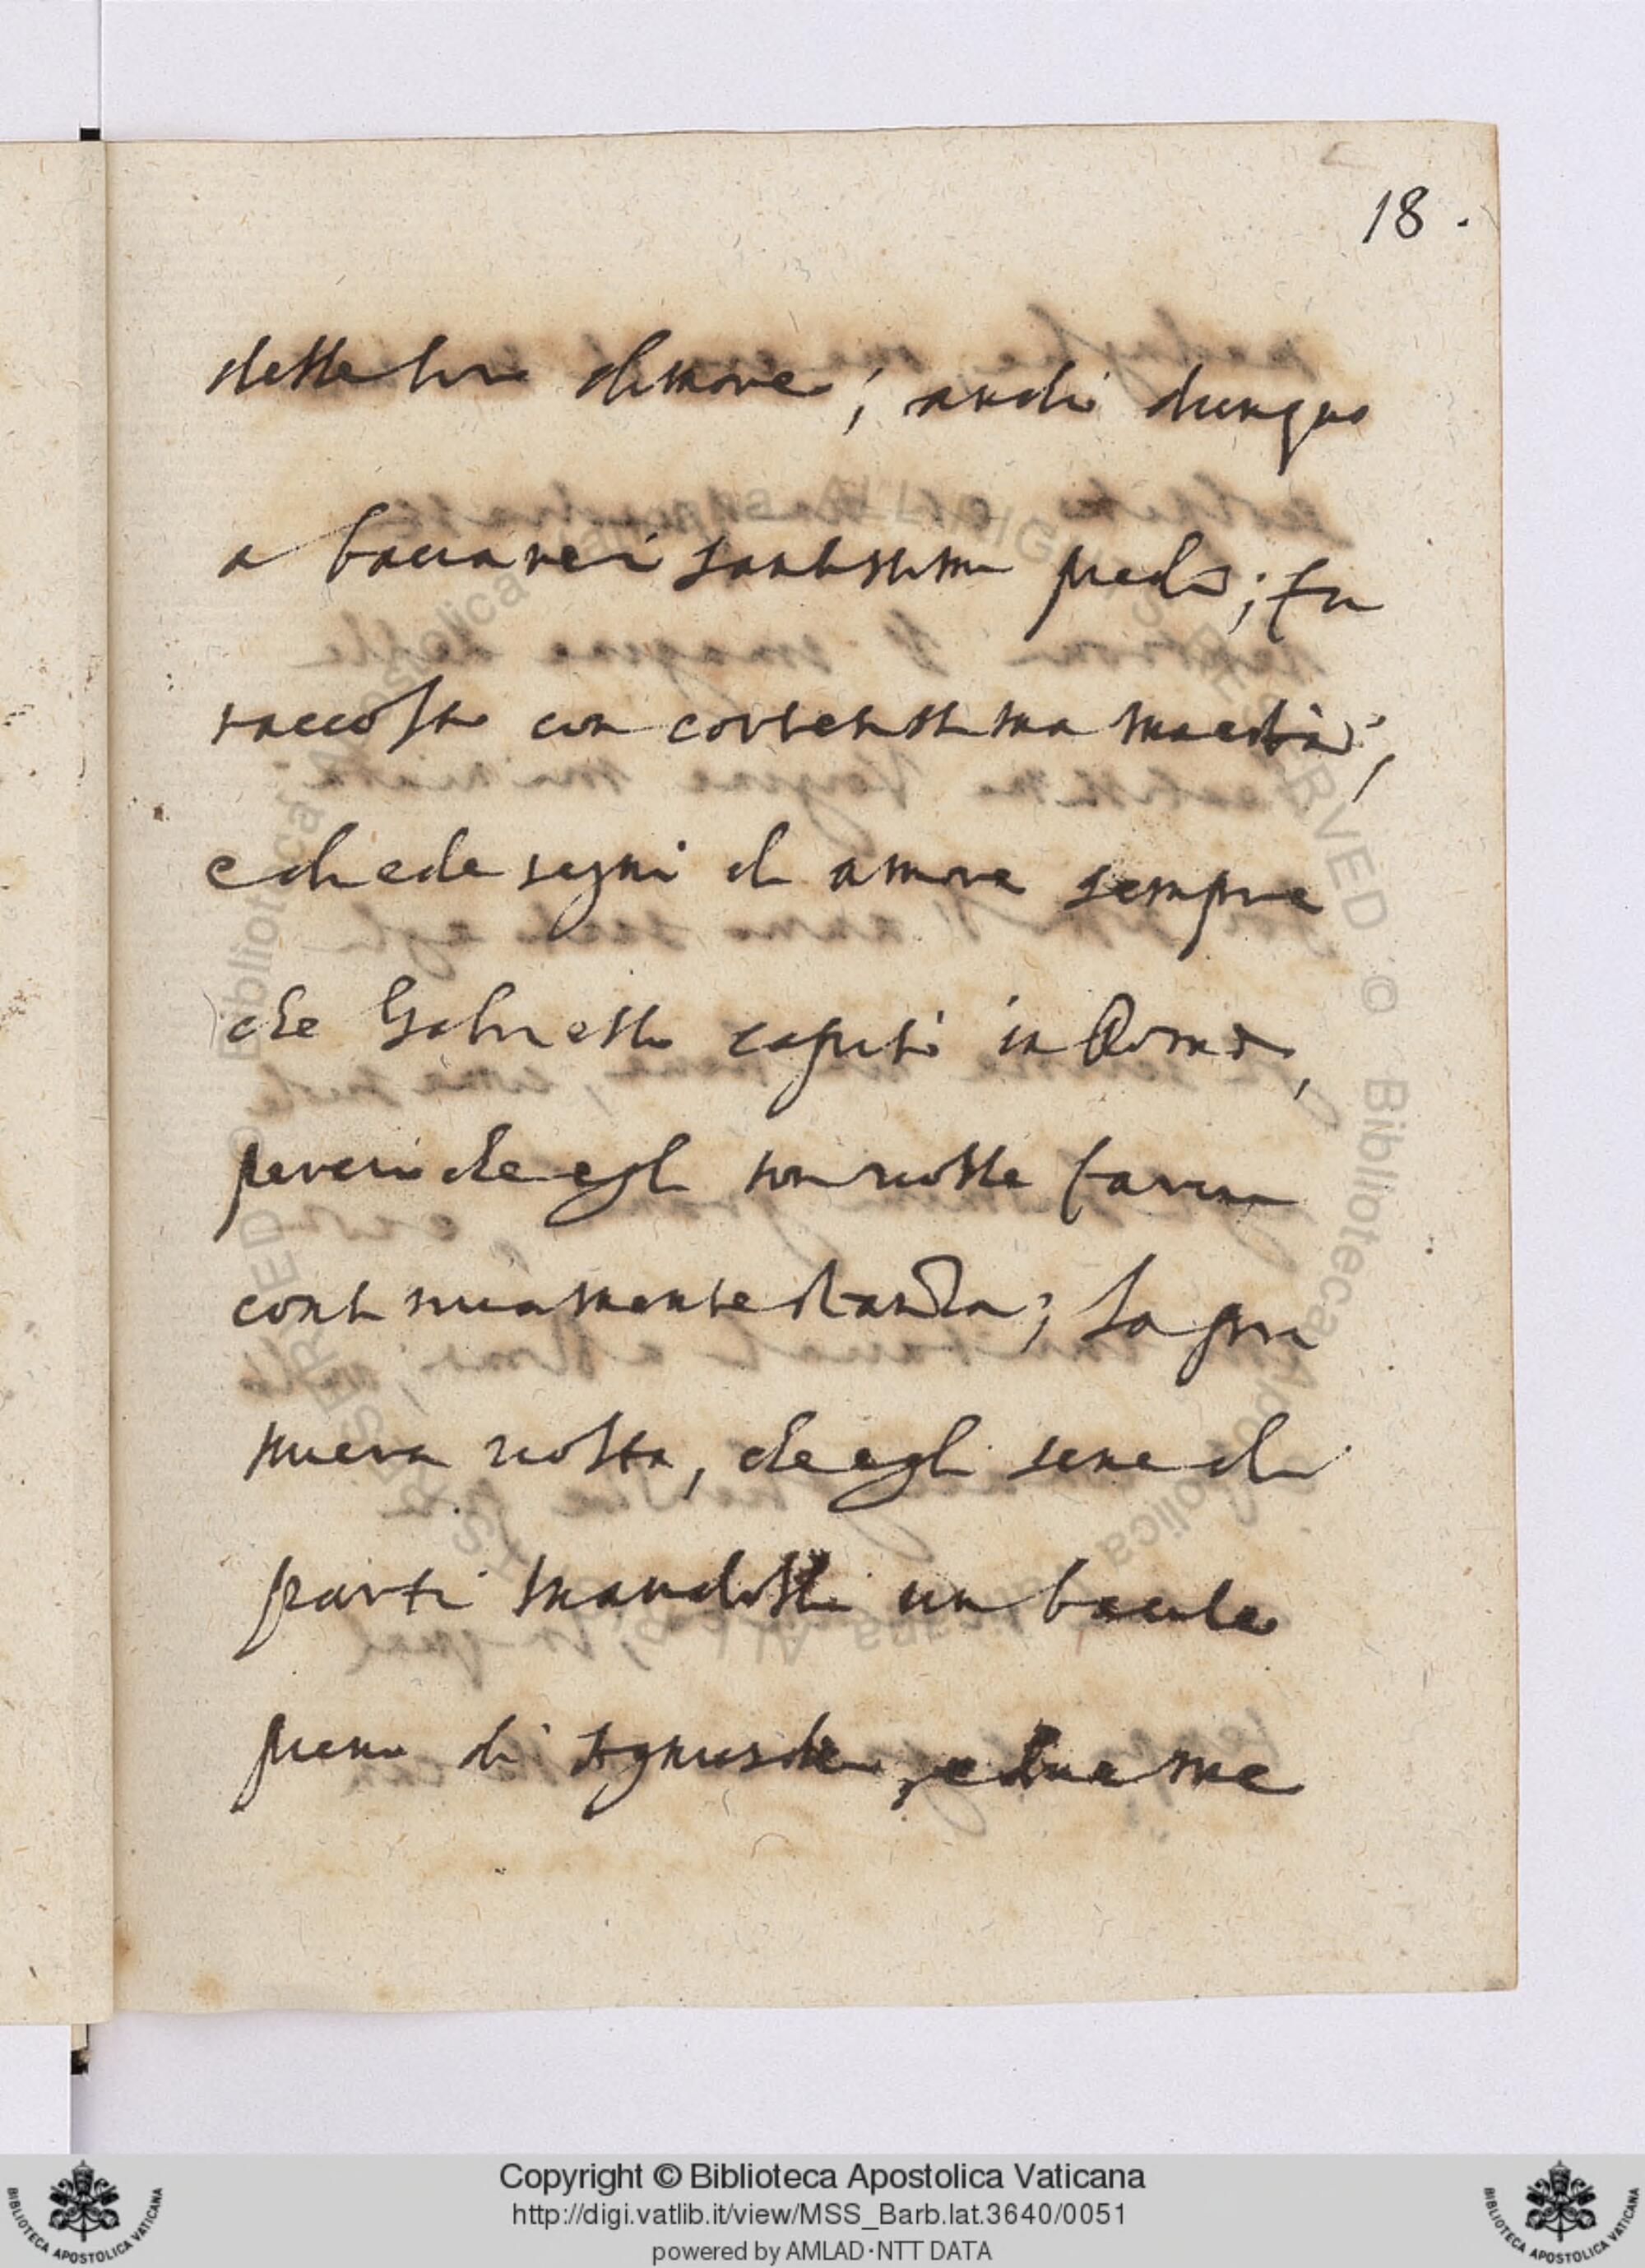 18.
delle loro dimore; andò dunque
a baciarei santissimi piedi; fu
raccolto con cortesissima maestà;
e diede segni di amore sempre
che Gabriello capitò in Roma,
perciò che egli non volle farvi
continuamente stanza; la pri
miera volta, che egli sene di
partì mandolli un bacile
pieno di Agnusdei, e due me
Copyright © Biblioteca Apostolica Vaticana
http://digi.vatlib.it/view/MSS_Barb.lat.3640/0051
powered by AMLAD·NTT DATA
BIBLIOTECA APOSTOLICA VATICANA
BIBLIOTECA APOSTOLICA VATICANA